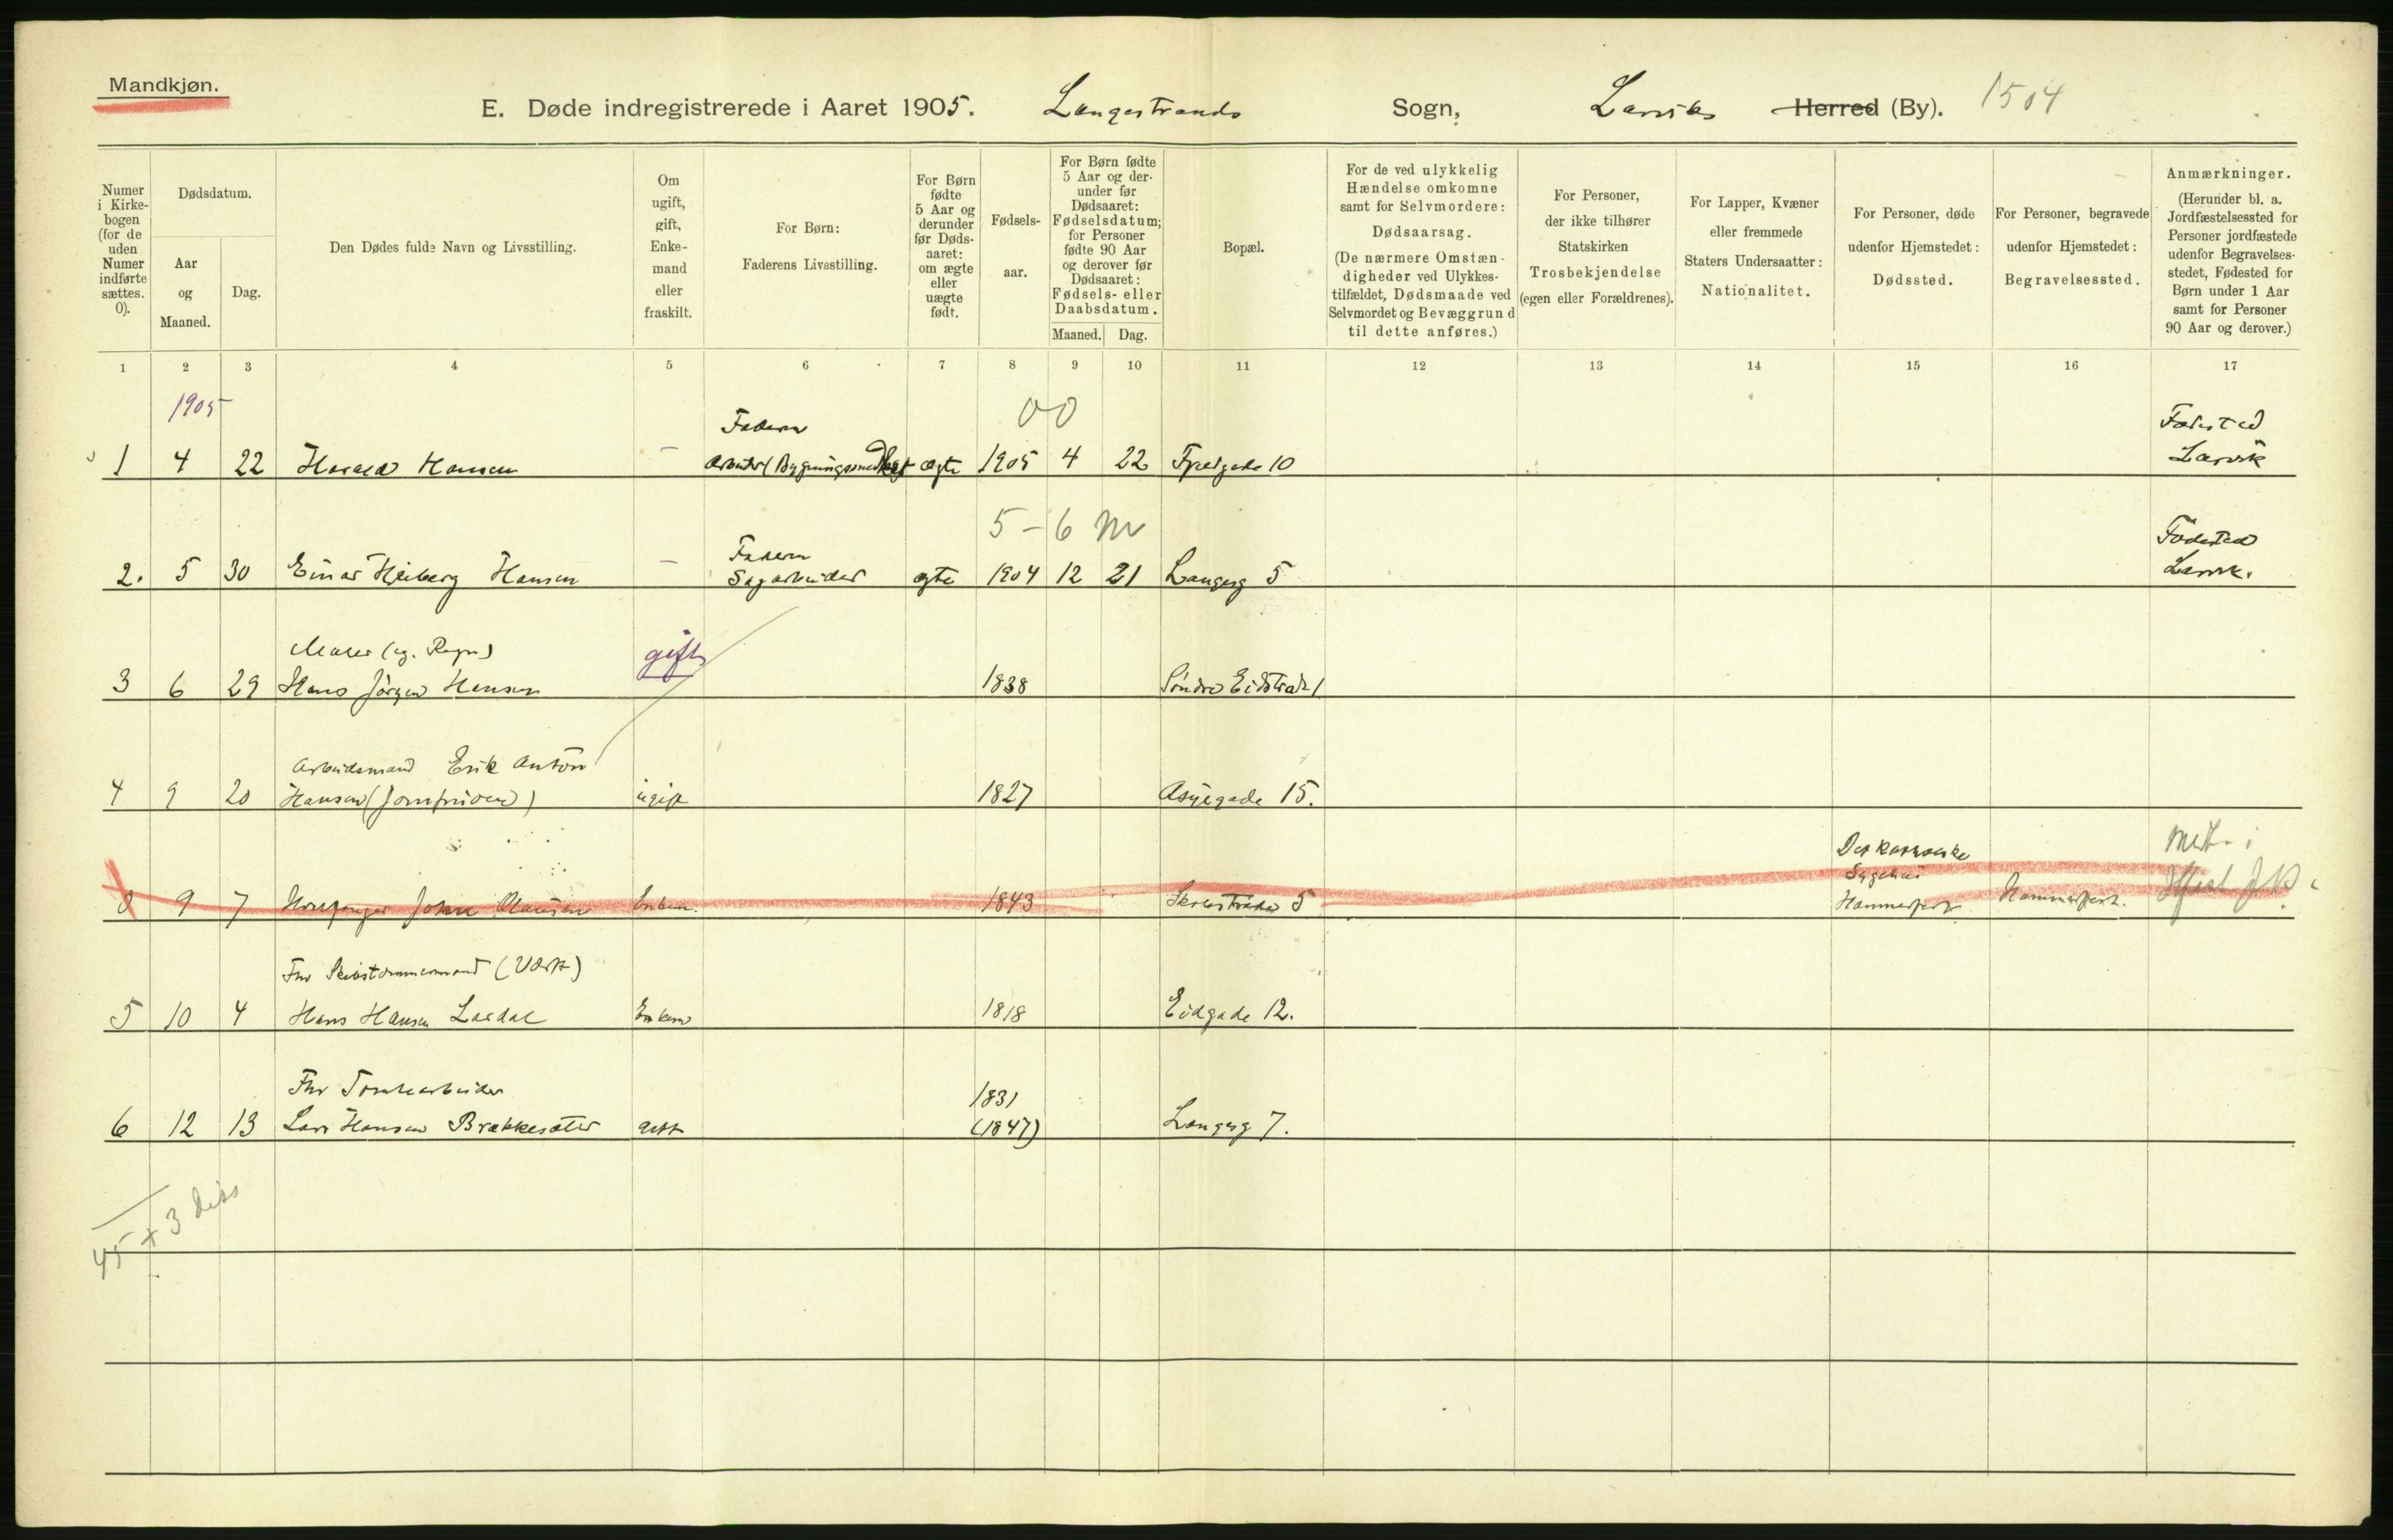 Mandkjøn.
E. Døde indregistrerede i Aaret 1905. Langestrands Sogn, Larviks Herred (By). 1504
Numer i Kirkebogen (for de uden Numer indførte sættes. 0).
Dødsdatum.
Aar og Maaned.
Dag.
Den Dødes fulde Navn og Livsstilling.
Om ugift, gift, Enkemand eller fraskilt.
For Børn: Faderens Livsstilling.
For Børn fødte 5 Aar og derunder før Dødsaaret: om ægte eller uægte født.
Fødselsaar.
For Børn fødte 5 Aar og derunder før Dødsaaret: Fødselsdatum; for Personer fødte 90 Aar og derover før Dødsaaret: Fødsels- eller Daabsdatum.
Maaned. Dag.
Bopæl.
For de ved ulykkelig Hændelse omkomne samt for Selvmordere: Dødsaarsag. (De nærmere Omstændigheder ved Ulykkestilfældet, Dødsmaade ved Selvmordet og Bevæggrund til dette anføres.)
For Personer, der ikke tilhører Statskirken Trosbekjendelse (egen eller Forældrenes).
For Lapper, Kvæner eller fremmede Staters Undersaatter: Nationalitet.
For Personer, døde udenfor Hjemstedet: Dødssted.
For Personer, begravede udenfor Hjemstedet: Begravelsessted.
Anmærkninger. (Herunder bl. a. Jordfæstelsessted for Personer jordfæstede udenfor Begravelsesstedet, Fødested for Børn under 1 Aar samt for Personer 90 Aar og derover.)
1 2 3 4 5 6 7 8 9 10 11 12 13 14 15 16 17
1905
00
Faderen Fødested
1 4 22 Harald Hansen – Arbeider ægte 1905 4 22 Fjeldgade 10 Larvik
5-6 M
Faderen Fødested
2. 5 30 Einar Heiberg Hansen – Sagarbeider ægte 1904 12 21 Langesg 5 Larvik.
gift
3 6 29 Hans Jörgen Hansen 1838 Söndre
Arbeidsmand Erik Anton
4 9 20 Hansen ugift 1827 15.
Sygehus
9 7 John Enkem. 1843 5 Hammerfest Hammerfest.
Fhv
5 10 4 Hans Hansen Lardal Enkem 1818 Eidgade 12.
Fhv Tomtearbeider 1831
6 12 13 Lars Hansen Brækkesæter gift (1847) Langesg 7.
45 + 3